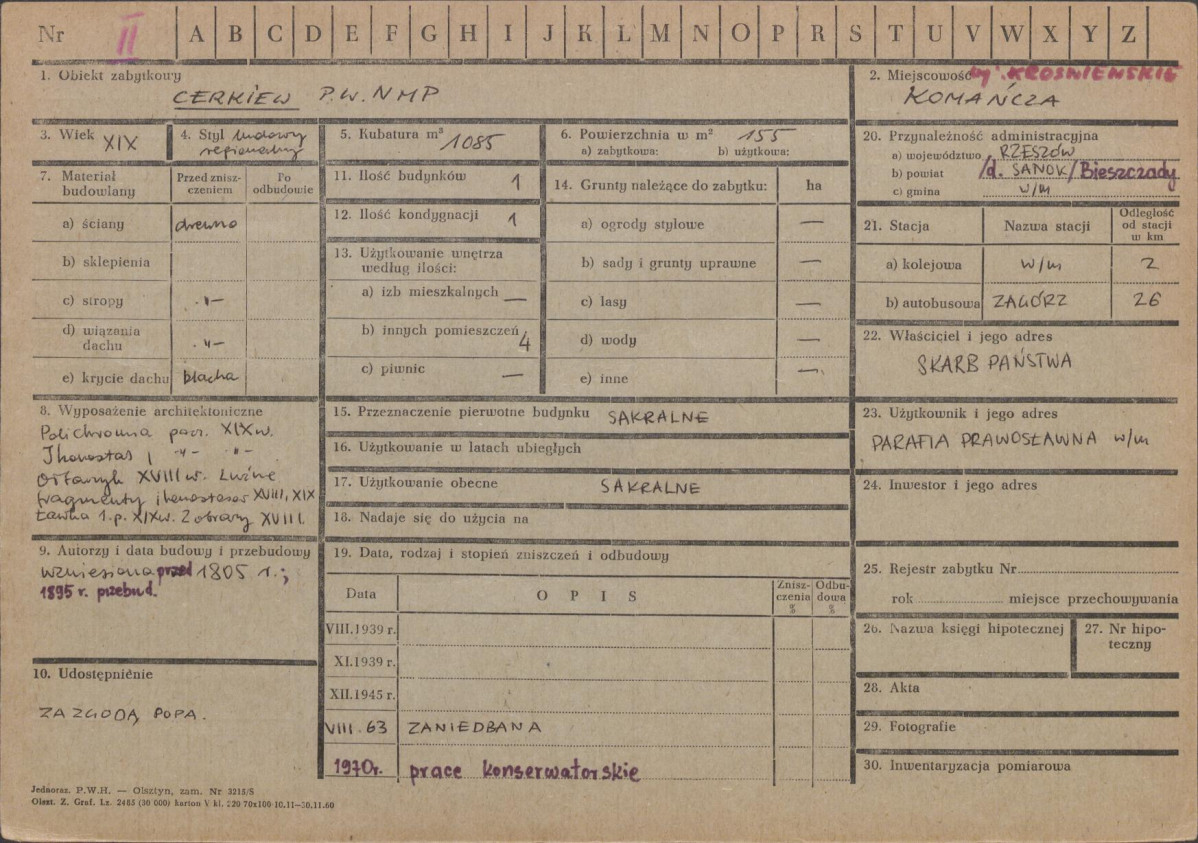 Nr II A B C D E F G H I J K L M N O P R S T U V W X Y Z
1. Obiekt zabytkowy
CERKIEW P.W. NMP
2. Miejscowość w. KROŚNIEŃSKIE
KOMAŃCZA
3. Wiek XIX
4. Styl ludowy
regionalny
5. Kubatura m³ 1085
6. Powierzchnia w m² 155
a) zabytkowa: b) użytkowa:
7. Materiał
budowlany
Przed znisz-
czeniem
Po
odbudowie
a) ściany drewno
b) sklepienia
c) stropy -"-
d) wiązania
dachu -"-
e) krycie dachu blacha
8. Wyposażenie architektoniczne
Polichromia pocz. XIX w.
Ikonostas | -"- -"-
Ołtarzyk XVIII w. Luźne
fragmenty ikonostasów XVIII, XIX
Ławka 1.p. XIX w. 2 obrazy XVIII.
9. Autorzy i data budowy i przebudowy
wzniesiona przed 1805 r.;
1895 r. przebud.
10. Udostępnienie
ZA ZGODĄ POPA.
11. Ilość budynków 1
12. Ilość kondygnacji 1
13. Użytkowanie wnętrza
według ilości:
a) izb mieszkalnych —
b) innych pomieszczeń 4
c) piwnic —
14. Grunty należące do zabytku: ha
a) ogrody stylowe —
b) sady i grunty uprawne —
c) lasy —
d) wody —
e) inne —
15. Przeznaczenie pierwotne budynku SAKRALNE
16. Użytkowanie w latach ubiegłych
17. Użytkowanie obecne SAKRALNE
18. Nadaje się do użycia na
19. Data, rodzaj i stopień zniszczeń i odbudowy
Data
OPIS
Znisz-
czenia
%
Odbu-
dowa
%
VIII.1939 r.
XI.1939 r.
XII.1945 r.
VIII. 63 ZANIEDBANA
1970r. prace konserwatorskie
20. Przynależność administracyjna
a) województwo RZESZÓW
b) powiat /d. SANOK/ Bieszczady
c) gmina w/m
21. Stacja
Nazwa stacji
Odległość
od stacji
w km
a) kolejowa w/m 2
b) autobusowa ZAGÓRZ 26
22. Właściciel i jego adres
SKARB PAŃSTWA
23. Użytkownik i jego adres
PARAFIA PRAWOSŁAWNA w/m
24. Inwestor i jego adres
25. Rejestr zabytku Nr
rok miejsce przechowywania
26. Nazwa księgi hipotecznej
27. Nr hipo-
teczny
28. Akta
29. Fotografie
30. Inwentaryzacja pomiarowa
Jednoraz. P.W.H. — Olsztyn, zam. Nr 3215/S
Olszt. Z. Graf. Lz. 2485 (30 000) karton V kl. 220 70x100 10.11—30.11.60